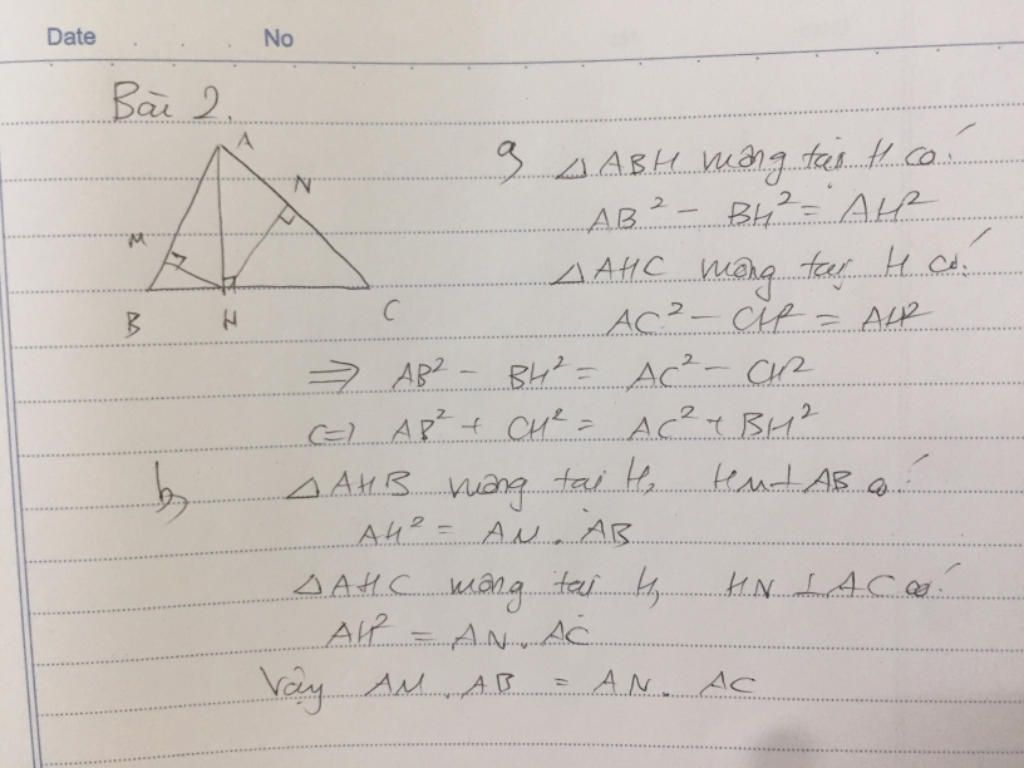 Date No
Bài 2.
A
N
M
B H C
a, △ABH vuông tại H có:
AB² - BH² = AH²
△AHC vuông tại H có:
AC² - CH² = AH²
⇒ AB² - BH² = AC² - CH²
<=> AB² + CH² = AC² + BH²
b, △AHB vuông tại H, HM⊥AB có:
AH² = AM . AB
△AHC vuông tại H, HN ⊥ AC có:
AH² = AN . AC
Vậy AM . AB = AN . AC